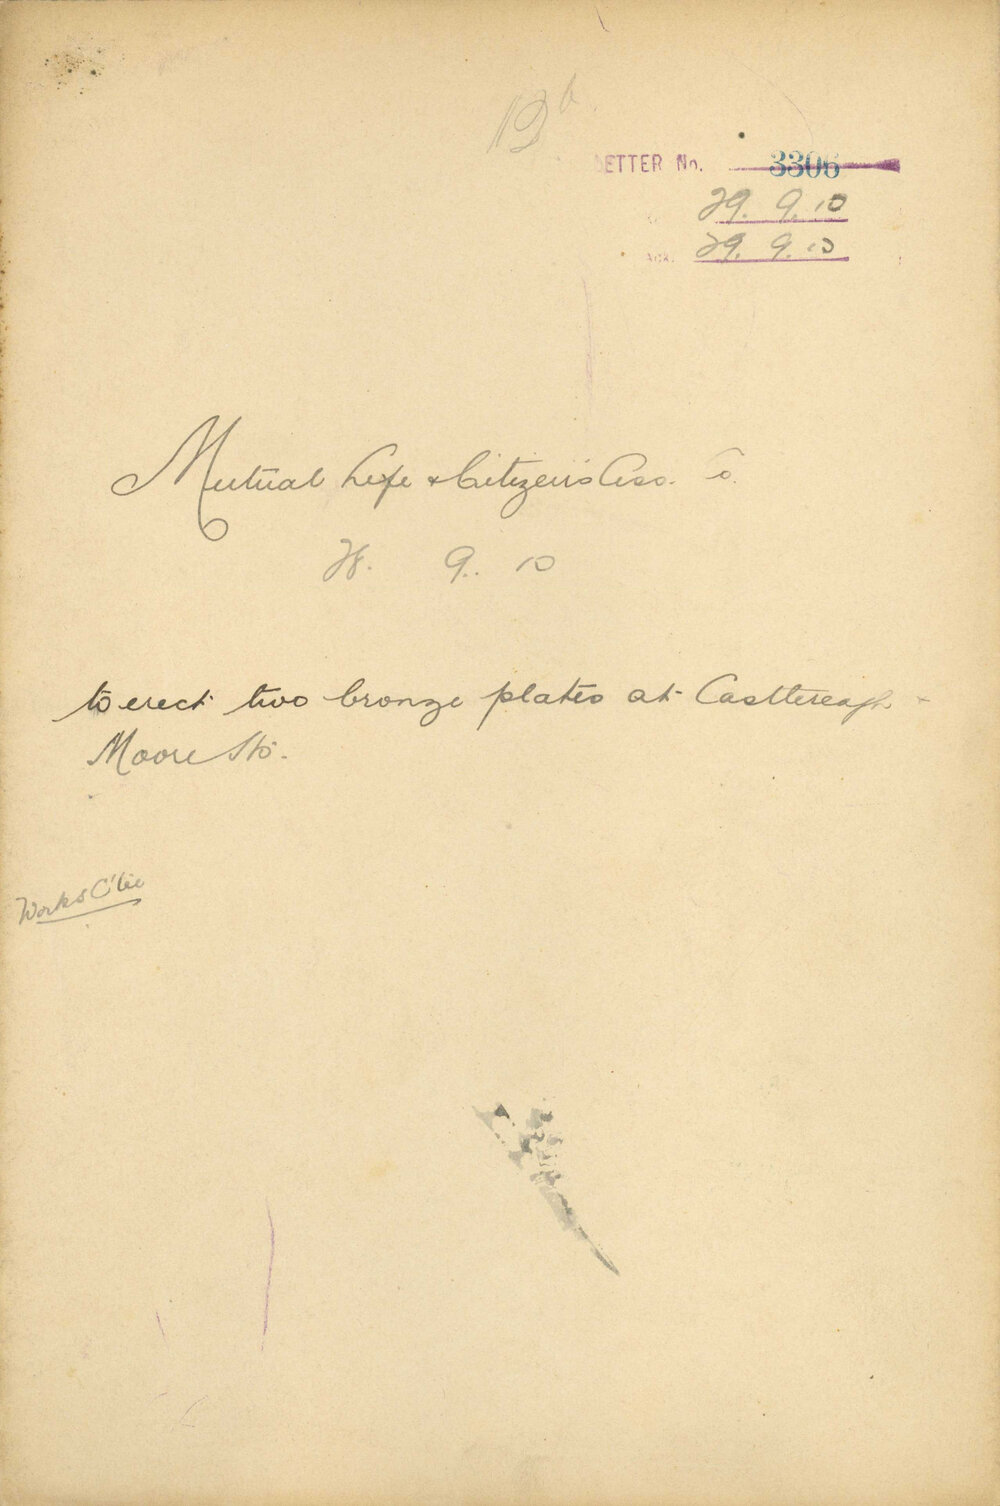 LETTER No. 3306
29. 9. 10
Ack. 29. 9. 10
Mutual Life & Citizens Ass. Co.
28. 9. 10
to erect two bronze plates at Castlereagh &
Moore Sts.
Works C'tee